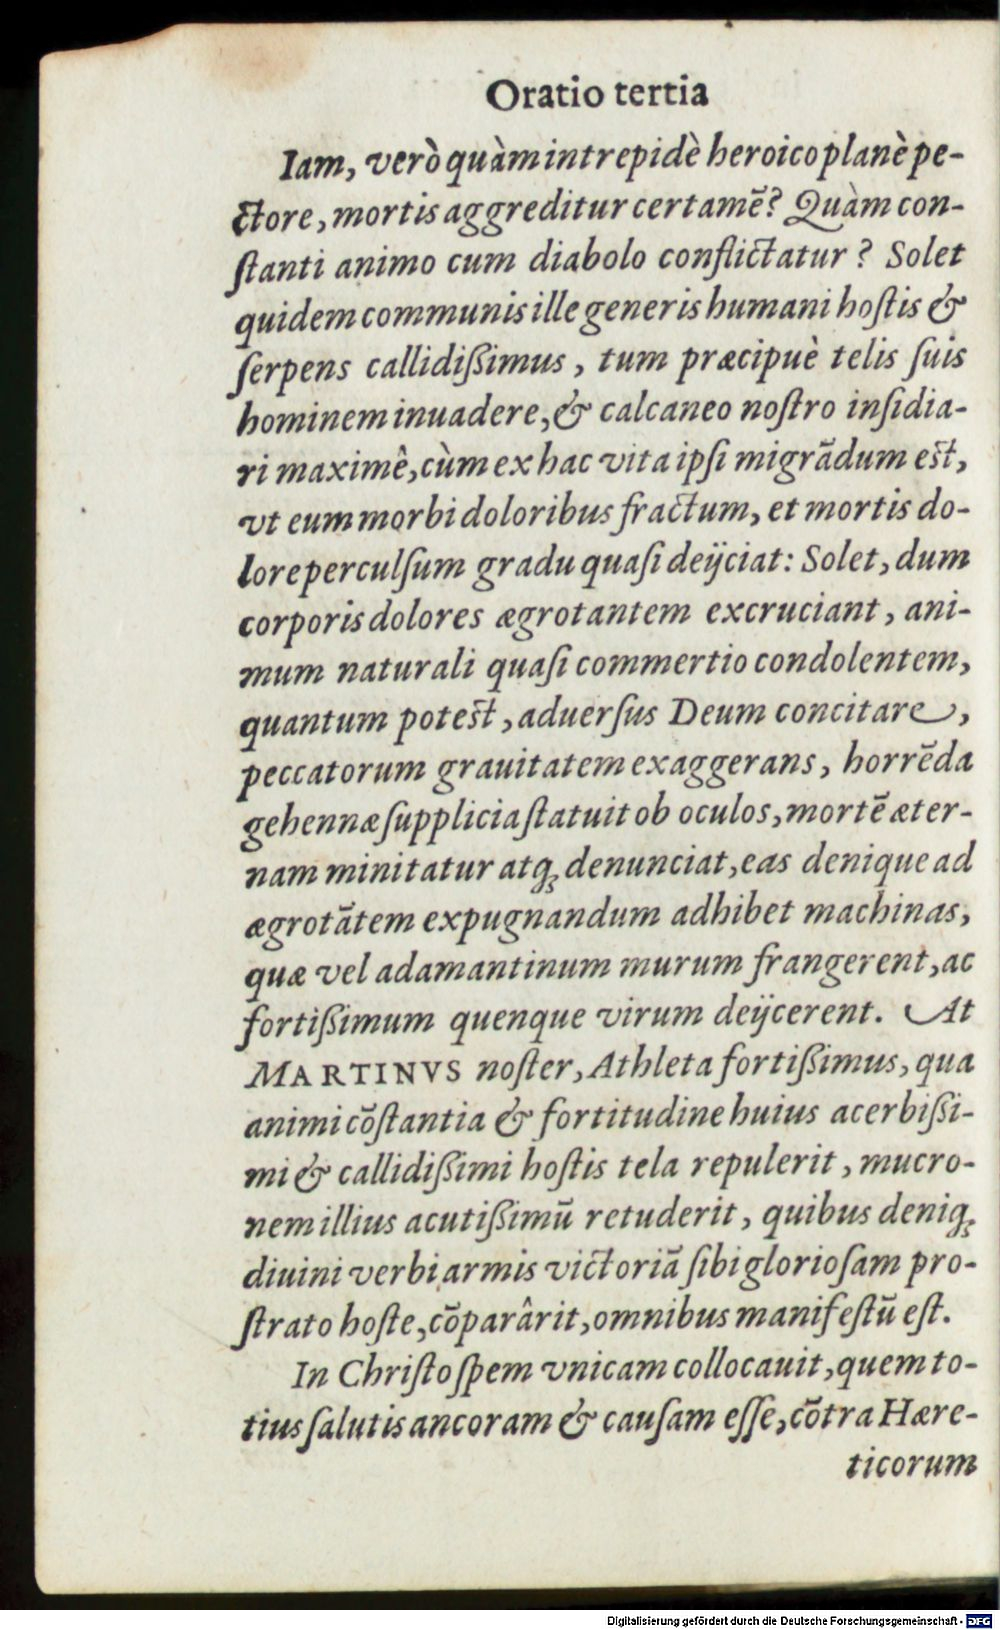 Oratio tertia
Iam, verò quàm intrepidè heroico planè pe-
ctore, mortis aggreditur certamē? Quàm con-
ſtanti animo cum diabolo conflictatur? Solet
quidem communis ille generis humani hoſtis &
ſerpens callidißimus, tum præcipuè telis ſuis
hominem inuadere, & calcaneo noſtro inſidia-
ri maximê, cùm ex hac vita ipſi migrādum est,
vt eum morbi doloribus fractum, et mortis do-
lore perculſum gradu quaſi deijciat: Solet, dum
corporis dolores ægrotantem excruciant, ani-
mum naturali quaſi commertio condolentem,
quantum potest, aduerſus Deum concitare,
peccatorum grauitatem exaggerans, horrēda
gehennæ ſupplicia ſtatuit ob oculos, mortē æter-
nam minitatur atq; denunciat, eas denique ad
ægrotātem expugnandum adhibet machinas,
quæ vel adamantinum murum frangerent, ac
fortißimum quenque virum deijcerent. At
MARTINVS noſter, Athleta fortißimus, qua
animi cōſtantia & fortitudine huius acerbißi-
mi & callidißimi hoſtis tela repulerit, mucro-
nem illius acutißimū retuderit, quibus deniq;
diuini verbi armis victoriā ſibi glorioſam pro-
ſtrato hoſte, cōparârit, omnibus manifeſtū eſt.
In Chriſto ſpem vnicam collocauit, quem to-
tius ſalutis ancoram & cauſam eſſe, cōtra Hære-
ticorum
Digitalisierung gefördert durch die Deutsche Forschungsgemeinschaft - DFG